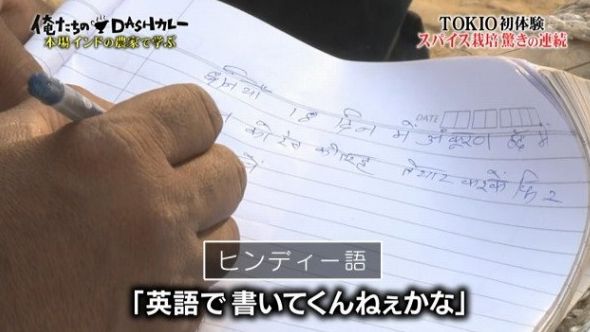 俺たちのDASHカレー
本場インドの農家で学ぶ
TOKIO初体験
スパイス栽培 驚きの連続
DATE
दिन में अंकुरण
करके
ヒンディー語
「英語で書いてくんねぇかな」